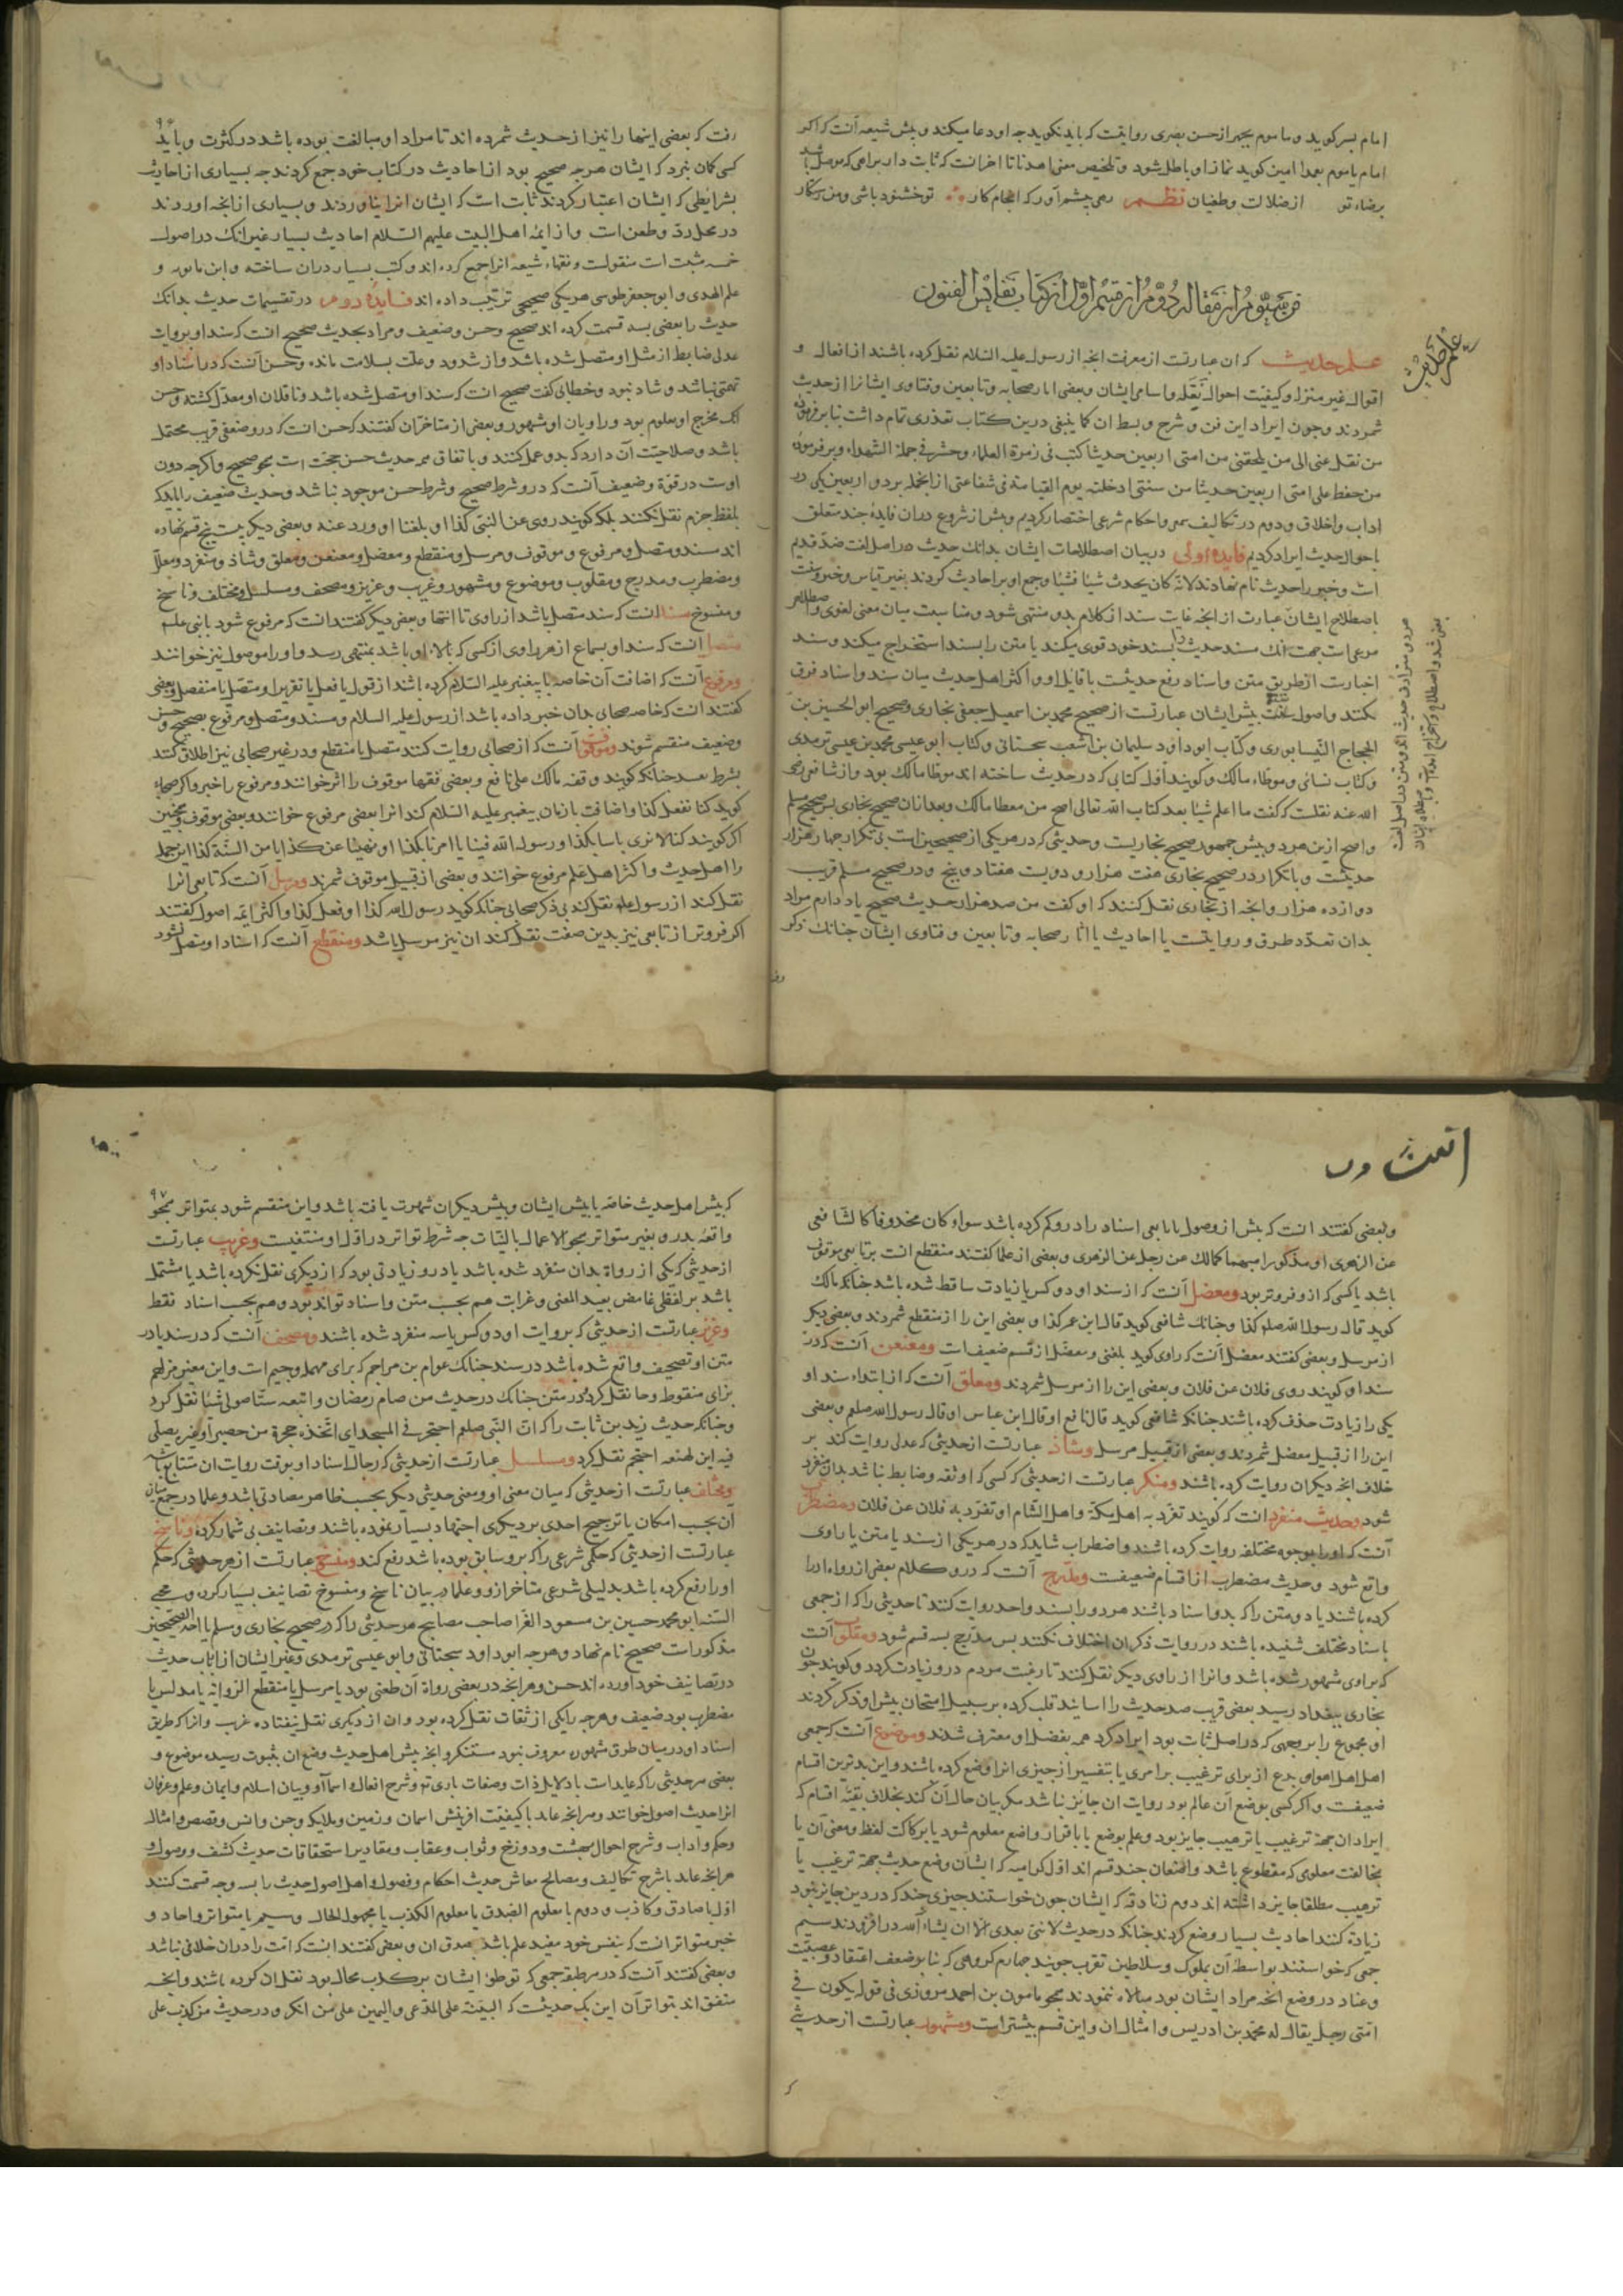 امام بسر کوید و ماموم بجهر از حسن بصری روایتست که باید نکوید چه او دعا میکند و پیش شیعه آنست که اکر
امام یا ماموم بعمدا امین کوید نماز او باطل شود و تلخیص معنی اهدنا تا اخر انست که ثابت دار براهی که موصل باشد
برضاء تو از ضلالت و طغیان نظم رهی پیشم آور که انجام کار تو خشنود باشی و من رستکار
فن سیوم از مقاله دوم از قسم اول از کتاب نفایس الفنون
علم حدیث
علم حدیث که ان عبارتست از معرفت انچه از رسول علیه السلام نقل کرده باشند از افعال و
اقوال غیر منزل و کیفیت احوال نقله و اسامی ایشان و بعضی اثار صحابه و تابعین و فتاوی ایشانرا از حدیث
شمردند و چون ایراد این فن و شرح و بسط ان کما ینبغی درین کتاب تعذری تمام داشت بنا بر فرموده
من نقل عنی الی من یلحقنی من امتی اربعین حدیثا کتب فی زمرة العلماء و حشر فی جملة الشهداء و بر فرموده
من حفظ علی امتی اربعین حدیثا من سنتی ادخلته یوم القیامة فی شفاعتی از انجمله بر دو اربعین یکی در
اداب و اخلاق و دوم در تکالیف و احکام شرعی اختصار کردیم و پیش از شروع دران فایدۀ چند متعلق
باحوال حدیث ایراد کردیم فایده اولی در بیان اصطلاحات ایشان بدانک حدیث در اصل لغت ضد قدیم
است و خبر را حدیث نام نهادند لانه کان یحدث شیئا فشیئا و جمع او بر احادیث کردند بغیر قیاس و خبر و سنت
باصطلاح ایشان عبارت از انچه غایت سند از کلام بدو منتهی شود و مناسبت میان معنی لغوی و اصطلاحی
اخبارست از طریق متن و اسناد رفع حدیثست با قایل او و اکثر اهل حدیث میان سند و اسناد فرق
نکنند و اصول پیش ایشان عبارتست از صحیح محمد بن اسمعیل جعفی بخاری و صحیح ابو الحسین بن
الحجاج النیسابوری و کتاب ابو داود سلیمان بن اشعب سجستانی و کتاب ابو عیسی محمد بن عیسی ترمدی
و کتاب نسائی و موطاء مالک و کویند اول کتابی که در حدیث ساخته اند موطا مالک بود و از شافعی رضی
الله عنه نقلست که کفت ما اعلم شیئا بعد کتاب الله تعالی اصح من موطا مالک و بعد ازان صحیح بخاری پس صحیح مسلم
و اصح ازین هر دو پیش جمهور صحیح بخاریست و حدیثی که در هر یکی از صحیحین است بی تکرار چهار هزار
حدیثست و با تکرار در صحیح بخاری هفت هزار و دویست هفتاد و پنج و در صحیح مسلم قریب
دوازده هزار و انچه از بخاری نقل کنند که او کفت من صد هزار حدیث صحیح یاد دارم مراد
بدان تعدد طرق و روایتست یا احادیث با اثار صحابه و تابعین و فتاوی ایشان چنانک ذکر
رفت که بعضی اینها را نیز از حدیث شمرده اند تا مراد او مبالغت بوده باشد در کثرت و باید
کسی کمان نبرد که ایشان هر چه صحیح بود از احادیث در کتاب خود جمع کردند چه بسیاری از احادیث
بشرایطی که ایشان اعتبار کردند ثابت است که ایشان انرا نیاوردند و بسیاری از انچه اوردند
در محل رد و طعن است و از ایمه اهل البیت علیهم السلام احادیث بسیار غیر انک در اصول
خمسه مثبت است منقولست و فقهاء شیعه انرا جمع کرده اند و کتب بسیار دران ساخته و ابن بابویه و
علم الهدی و ابو جعفر طوسی هر یکی صحیحی ترتیب داده اند فایدۀ دوم در تقسیمات حدیث بدانک
حدیث را بعضی بسه قسمت کرده اند صحیح و حسن و ضعیف و مراد بحدیث صحیح انست که سند او بروایت
عدلی ضابط از مثل او متصل شده باشد و از شذوذ و علت بسلامت مانده و حسن آنست که در اسناد او
تهمتی نباشد و شاد نبود و خطابی کفت صحیح انست که سند او متصل شده باشد و ناقلان او معدل کشته و حسن
انک مخرج او معلوم بود و راویان او مشهور و بعضی از متاخران کفتند که حسن انست که درو ضعفی قریب محتمل
باشد و صلاحیت آن دارد که بدو عمل کنند و باتفاق همه حدیث حسن حجت است همچو صحیح و اکر چه دون
اوست در قوة و ضعیف آنست که درو شرط صحیح و شرط حسن موجود نباشد و حدیث ضعیف را باید که
بلفظ جزم نقل نکنند بلکه کویند روی عن النبی کذا او بلغنا او ورد عنه و بعضی دیکر بیست پنج قسم نهاده
اند مسند و متصل و مرفوع و موقوف و مرسل و منقطع و معضل و معنعن و معلق و شاذ و منفرد و معلل
و مضطرب و مدرج و مقلوب و موضوع و مشهور و غریب و عزیز و مصحف و مسلسل و مختلف و ناسخ
و منسوخ مسند انست که سند متصل باشد از راوی تا انتها و بعضی دیکر کفتند انست که مرفوع شود با نبی علیه
متصل آنست که سند او بسماع از هر راوی از کسی که بالاء او باشد بمنتهی رسد و او را موصول نیز خوانند
و مرفوع آنست که اضافت آن خاصه با پیغمبر علیه السلام کرده باشند از قول یا فعل یا تقریر او متصل یا منفصل و بعضی
کفتند انست که خاصه صحابی بدان خبر داده باشد از رسول علیه السلام و مسند و متصل و مرفوع بصحیح و حسن
و ضعیف منقسم شوند و موقوف آنست که از صحابی روایت کنند متصل یا منقطع و در غیر صحابی نیز اطلاق کنند
بشرط تقیید چنانک کویند وقفه مالک علی نافع و بعضی فقها موقوف را اثر خوانند و مرفوع را خبر و اکر صحابه
کوید کنا نفعل کذا و اضافت بازمان پیغمبر علیه السلام کند انرا بعضی مرفوع خوانند و بعضی موقوف همچنین
اکر کویند کنا لا نری باسا بکذا و رسول الله فینا یا امرنا بکذا او نهینا عن کذا یا من السنة کذا این جمله
را اهل حدیث و اکثر اهل علم مرفوع خوانند و بعضی از قبیل موقوف شمرند و مرسل آنست که تابعی انرا
نقل کند از رسول علیه نقل کند بی ذکر صحابی چنانک کوید رسول الله کذا او فعل کذا و اکثر ایمه اصول کفتند
اکر فروتر از تابعی نیز بدین صفت نقل کند ان نیز مرسل باشد و منقطع آنست که اسناد او متصل نشود
و بعضی کفتند انست که پیش از وصول باتابعی اسناد را درو کم کرده باشد سواء کان محذوفا کالشافعی
عن الزهری او مذکورا مبهما کمالک عن رجل عن الزهری و بعضی از علما کفتند منقطع انست بر تابعی موقوف
باشد یا کسی که ازو فروتر بود و معضل آنست که از سند او دو کس یا زیادت ساقط شده باشد چنانک مالک
کوید قال رسول الله صلعم کذا و چنانک شافعی کوید قال ابن عمر کذا و بعضی این را از منقطع شمردند و بعضی دیکر
از مرسل و بعضی کفتند معضل آنست که راوی کوید بلغنی و معضل از قسم ضعیف است و معنعن آنست که در
سند او کویند روی فلان عن فلان و بعضی این را از مرسل شمردند و معلق آنست که از ابتداء سند او
یکی را زیادت حذف کرده باشند چنانک شافعی کوید قال نافع او قال ابن عباس او قال رسول الله صلعم و بعضی
این را از قبیل معضل شمردند و بعضی از قبیل مرسل و شاذ عبارتست از حدیثی که عدلی روایت کند بر
خلاف انچه دیکران روایت کرده باشند و منکر عبارتست از حدیثی که کسی که او ثقه و ضابط نباشد بدان منفرد
شود و حدیث منفرد انست که کویند تفرد به اهل مکة و اهل الشام او تفرد به فلان عن فلان و مضطرب
آنست که او را بوجوه مختلفه روایت کرده باشند و اضطراب شاید که در هر یکی از سند یا متن یا راوی
واقع شود و حدیث مضطرب از اقسام ضعیفست و مدرج آنست که درو کلام بعضی از رواه ادرا
کرده باشند یا دو متن را که بدو اسناد باشند هر دو را بسند واحد روایت کنند تا حدیثی را که از جمعی
باسناد مختلف شنیده باشند در روایت ذکر ان اختلاف نکنند پس مدرج بسه قسم شود و مقلوب آنست
که براوی مشهور شده باشد و انرا از راوی دیکر نقل کنند تا رغبت مردم درو زیادت کردد و کویند چون
بخاری ببغداد رسید بعضی قریب صد حدیث را اسانید قلب کرده بر سبیل امتحان پیش او ذکر کردند
او مجموع را بر وجهی که در اصل ثابت بود ایراد کرد همه بفضل او معترف شدند و موضوع آنست که جمعی
اهل اهوا و بدع از برای ترغیب بر امری یا تنفیر از چیزی انرا وضع کرده باشند و این بدترین اقسام
ضعیفست و اکر کسی بوضع آن عالم بود روایت ان جایز نباشد مکر بیان حال آن کند بخلاف بقیه اقسام که
ایراد ان جهة ترغیب یا ترهیب جایز بود و علم بوضع یا باقرار واضع معلوم شود یا برکاکت لفظ و معنی آن یا
بمخالفت معلوی که مقطوع باشد و واضعان چند قسم اند اول کرامیه که ایشان وضع حدیث جهة ترغیب یا
ترهیب مطلقا جایز داشته اند دوم زنادقه که ایشان چون خواستند چیزی چند که در دین جایز نبود
زیاده کنند احادیث بسیار وضع کردند چنانکه در حدیث لا نبی بعدی الا ان یشاء الله در افزودند سیم
جمعی که خواستند بواسطه آن بملوک و سلاطین تقرب جویند چهارم کروهی که بنا بر ضعف اعتقاد و عصبیت
و عناد در وضع انچه مراد ایشان بود مبالاه ننمودند همچو مامون بن احمد مروزی فی قوله یکون فی
امتی رجل یقال له محمد بن ادریس و امثال ان و این قسم بیشترست و مشهور عبارتست از حدیثی
۹۷
که پیش اهل حدیث خاصه یا پیش ایشان و پیش دیکران شهرت یافته باشد و این منقسم شود بمتواتر همچو
واقعه بدر و بغیر متواتر همچو الاعمال بالنیات چه شرط تواتر در اول او منتفیست و غریب عبارتست
از حدیثی که یکی از رواة بدان منفرد شده باشد یا درو زیادتی بود که از دیکری نقل نکرده باشد یا مشتمل
باشد بر لفظی غامض بعید المعنی و غرابت هم بحسب متن و اسناد تواند بود و هم بحسب اسناد فقط
و عزیز عبارتست از حدیثی که بروایت او دو کس یا سه منفرد شده باشند و مصحف آنست که در سند یا در
متن او تصحیف واقع شده باشد در سند چنانک عوام بن مراجم که برای مهمله و جیم است و ابن معین مزاحم
بزای منقوط و حا نقل کرد و در متن چنانک در حدیث من صام رمضان و اتبعه ستا صولی شیئا نقل کرد
و چنانکه حدیث زید بن ثابت را که ان النبی صلعم احتجر فی المسجد ای اتخذ حجرة من حصیر او غیره یصلی
فیه ابن لهیعه احتجم نقل کرد و مسلسل عبارتست از حدیثی که رجال اسناد او بوقت روایت ان متتابع باشد
و مختلف عبارتست از حدیثی که میان معنی او و معنی حدیثی دیکر بحسب ظاهر مضادتی باشد و علما در جمع میان
ان بحسب امکان یا ترجیح احدی بر دیکری اجتهاد بسیار نموده باشند و تصانیف بی شمار کرده و ناسخ
عبارتست از حدیثی که حکمی شرعی را که برو سابق بوده باشد رفع کند و منسوخ عبارتست از هر حدیثی که حکم
او را رفع کرده باشد بدلیلی شرعی متاخر ازو و علما در بیان ناسخ و منسوخ تصانیف بسیار کردند و محیی
السنه ابو محمد حسین بن مسعود الفرا صاحب مصابیح هر حدیثی را که در صحیح بخاری و مسلم یا احد الصحیحین
مذکورست صحیح نام نهاد و هر چه ابو داود سجستانی و ابو عیسی ترمدی و غیر ایشان از ایمه حدیث
در تصانیف خود اورده اند حسن و هر انچه در بعضی رواة آن طعنی بود یا مرسل یا منقطع الروایه یا مدلس یا
مضطرب بود ضعیف و هر چه را یکی از ثقات نقل کرده بود و ان از دیکری نقل نیفتاده غریب و انرا که طریق
اسناد او در میان طرق مشهوره معروف نبود مستنکر و انچه پیش اهل حدیث وضع ان بثبوت رسیده موضوع و
بعضی هر حدیثی را که عایدست با دلایل ذات و صفات باری تع و شرح افعال و اسماء او و بیان اسلام و ایمان و علم و عرفان
انرا حدیث اصول خوانند و هر انچه عاید با کیفیت افرینش اسمان و زمین و ملایکه و جن و انس و قصص و امثال
و حکم و اداب و شرح احوال بهشت و دوزخ و ثواب و عقاب و مقادیر استحقاقات حدیث کشف و وصول و
هر انچه عاید با شرح تکالیف و مصالح معاش حدیث احکام و فصول و اهل اصول حدیث را بسه وجه قسمت کنند
اول با صادق و کاذب و دوم با معلوم الصدق یا معلوم الکذب یا مجهول الحال و سیم با متواتر و احاد و
خبر متواتر انست که بنفس خود مفید علم باشد بصدق ان و بعضی کفتند انست که امت را دران خلافی نباشد
و بعضی کفتند آنست که در هر طبقه جمعی که تواطؤ ایشان بر کذب محال بود نقل ان کرده باشند و انچه
متفق اند بتواتر آن این یک حدیثست که البینة علی المدعی و الیمین علی من انکر و در حدیث من کذب علی